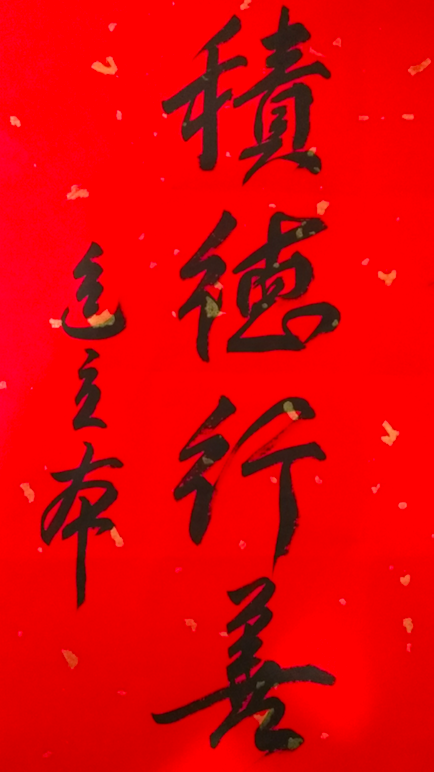 積德行善
立本